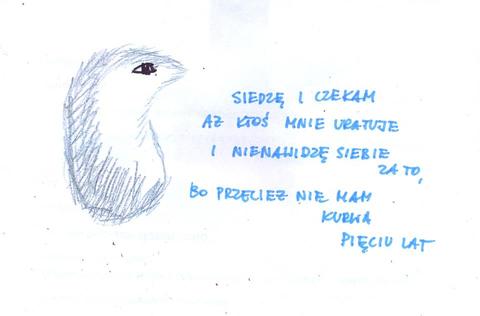 SIEDZĘ I CZEKAM
AŻ KTOŚ MNIE URATUJE
I NIENAWIDZĘ SIEBIE
ZA TO,
BO PRZECIEŻ NIE MAM
KURWA
PIĘCIU LAT